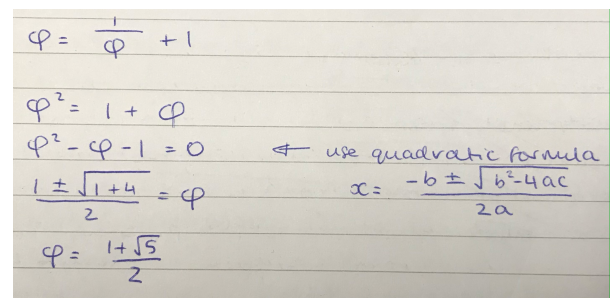 φ = 1/φ + 1
φ² = 1 + φ
φ² - φ - 1 = 0 ← use quadratic formula
(1 ± √(1+4))/2 = φ x = (-b ± √(b²-4ac))/2a
φ = (1+√5)/2